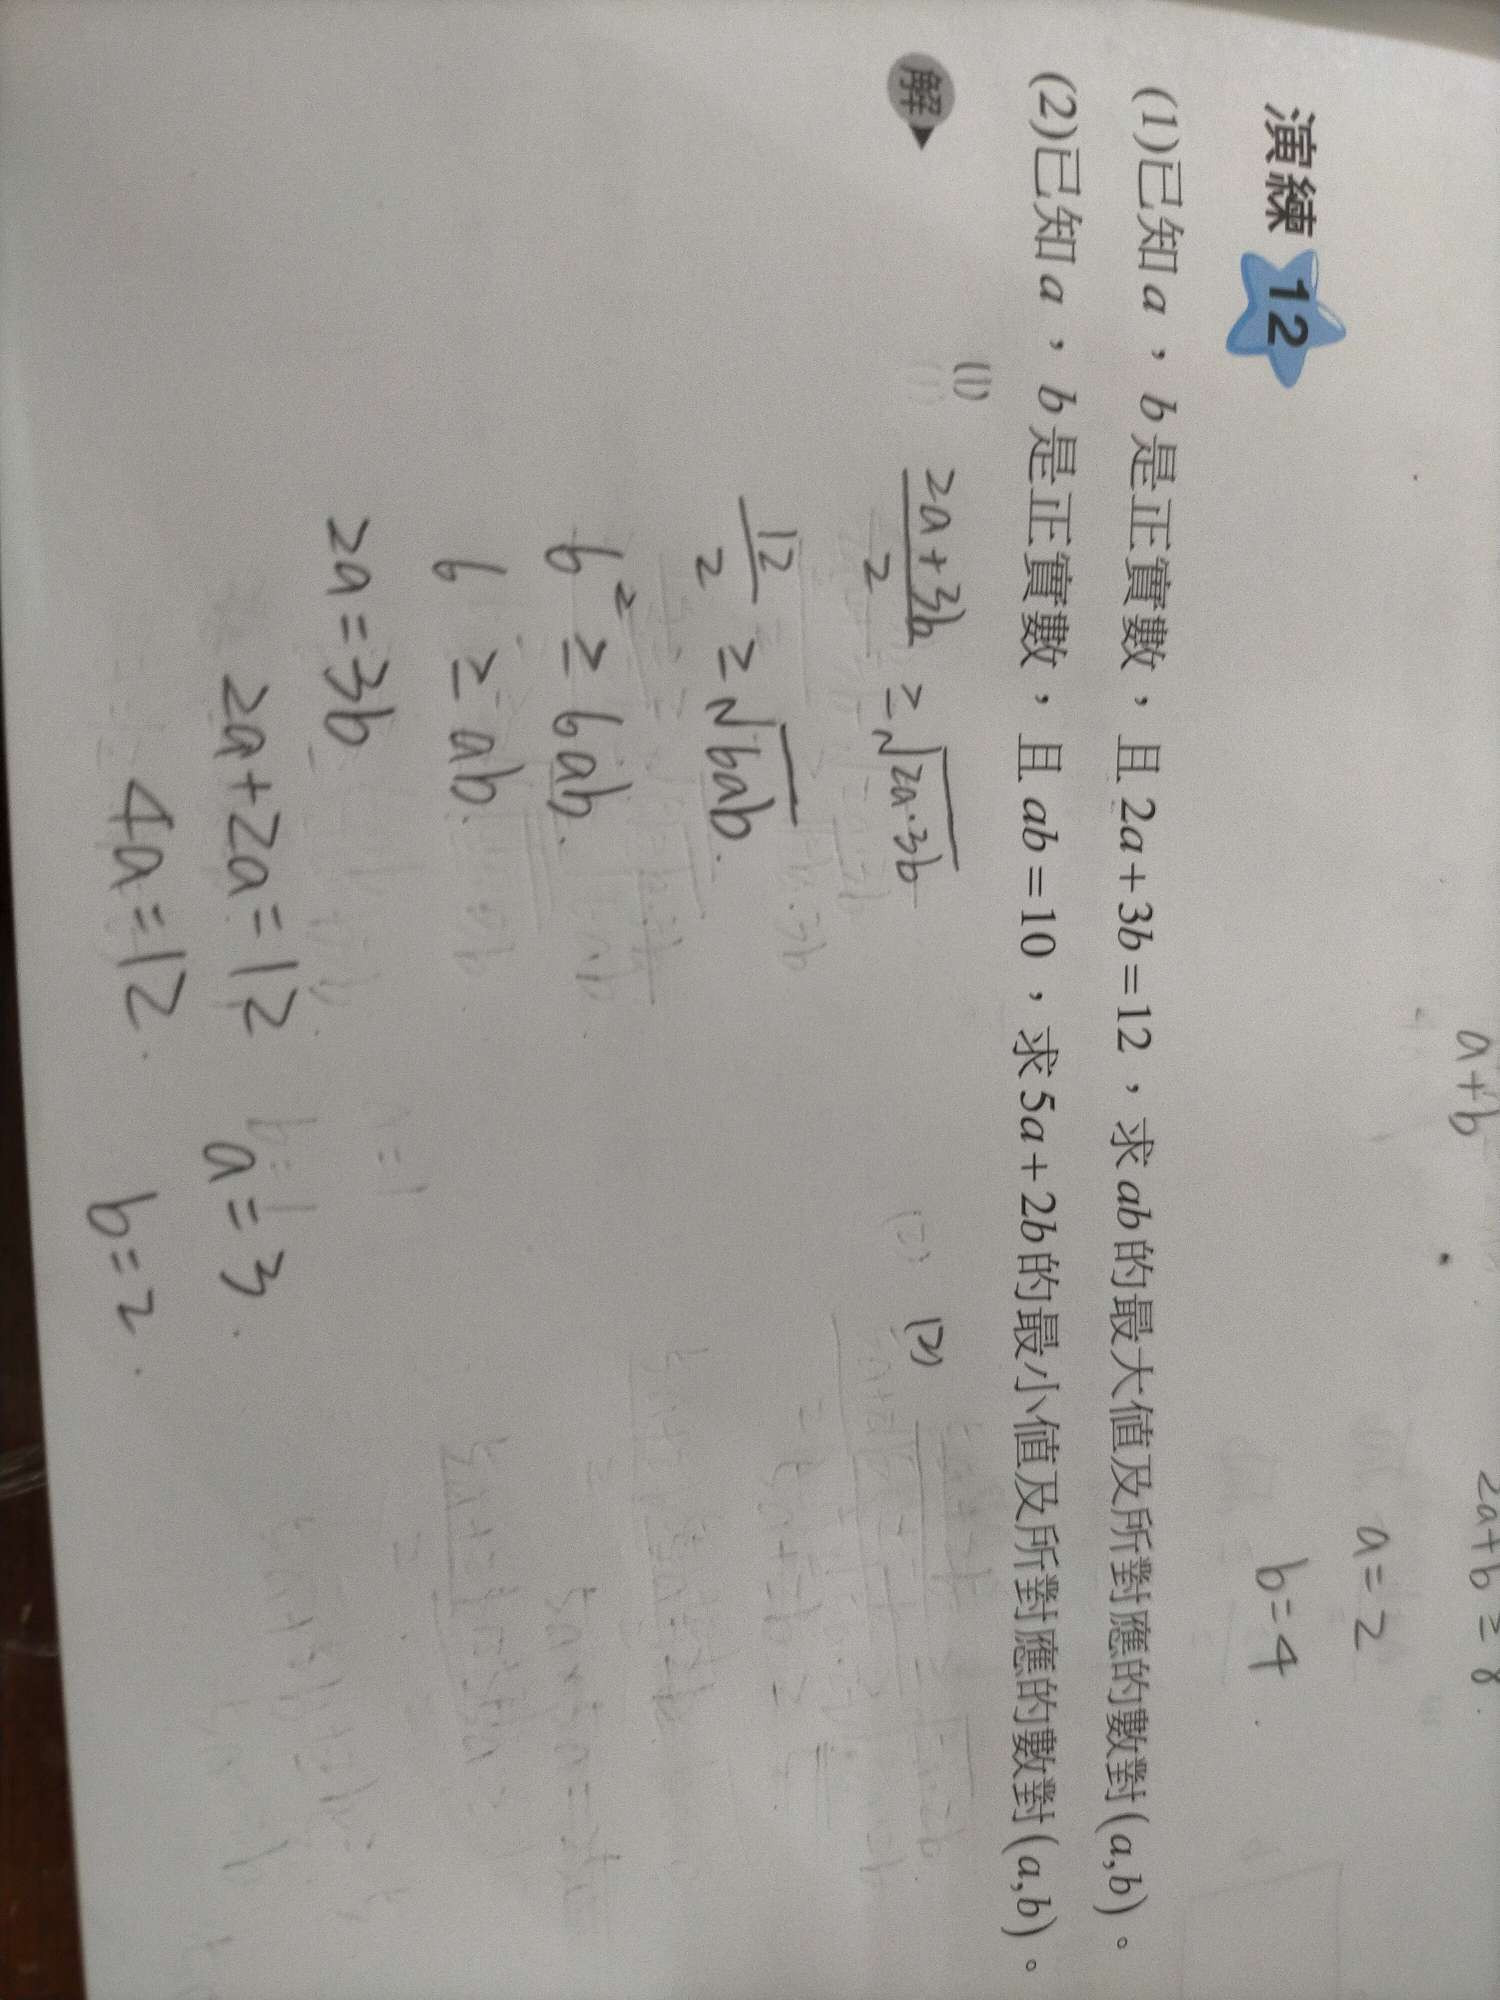 a+b
2a+b=8.
a=2
b=4
演練 12
(1)已知a，b是正實數，且2a+3b=12，求ab的最大值及所對應的數對(a,b)。
(2)已知a，b是正實數，且ab=10，求5a+2b的最小值及所對應的數對(a,b)。
解
(1)
2a+3b/2 ≥ √2a·3b
12/2 ≥ √6ab.
6² ≥ 6ab.
6 ≥ ab.
2a=3b
2a+2a=12
4a=12.
a=3.
b=2.
(2)